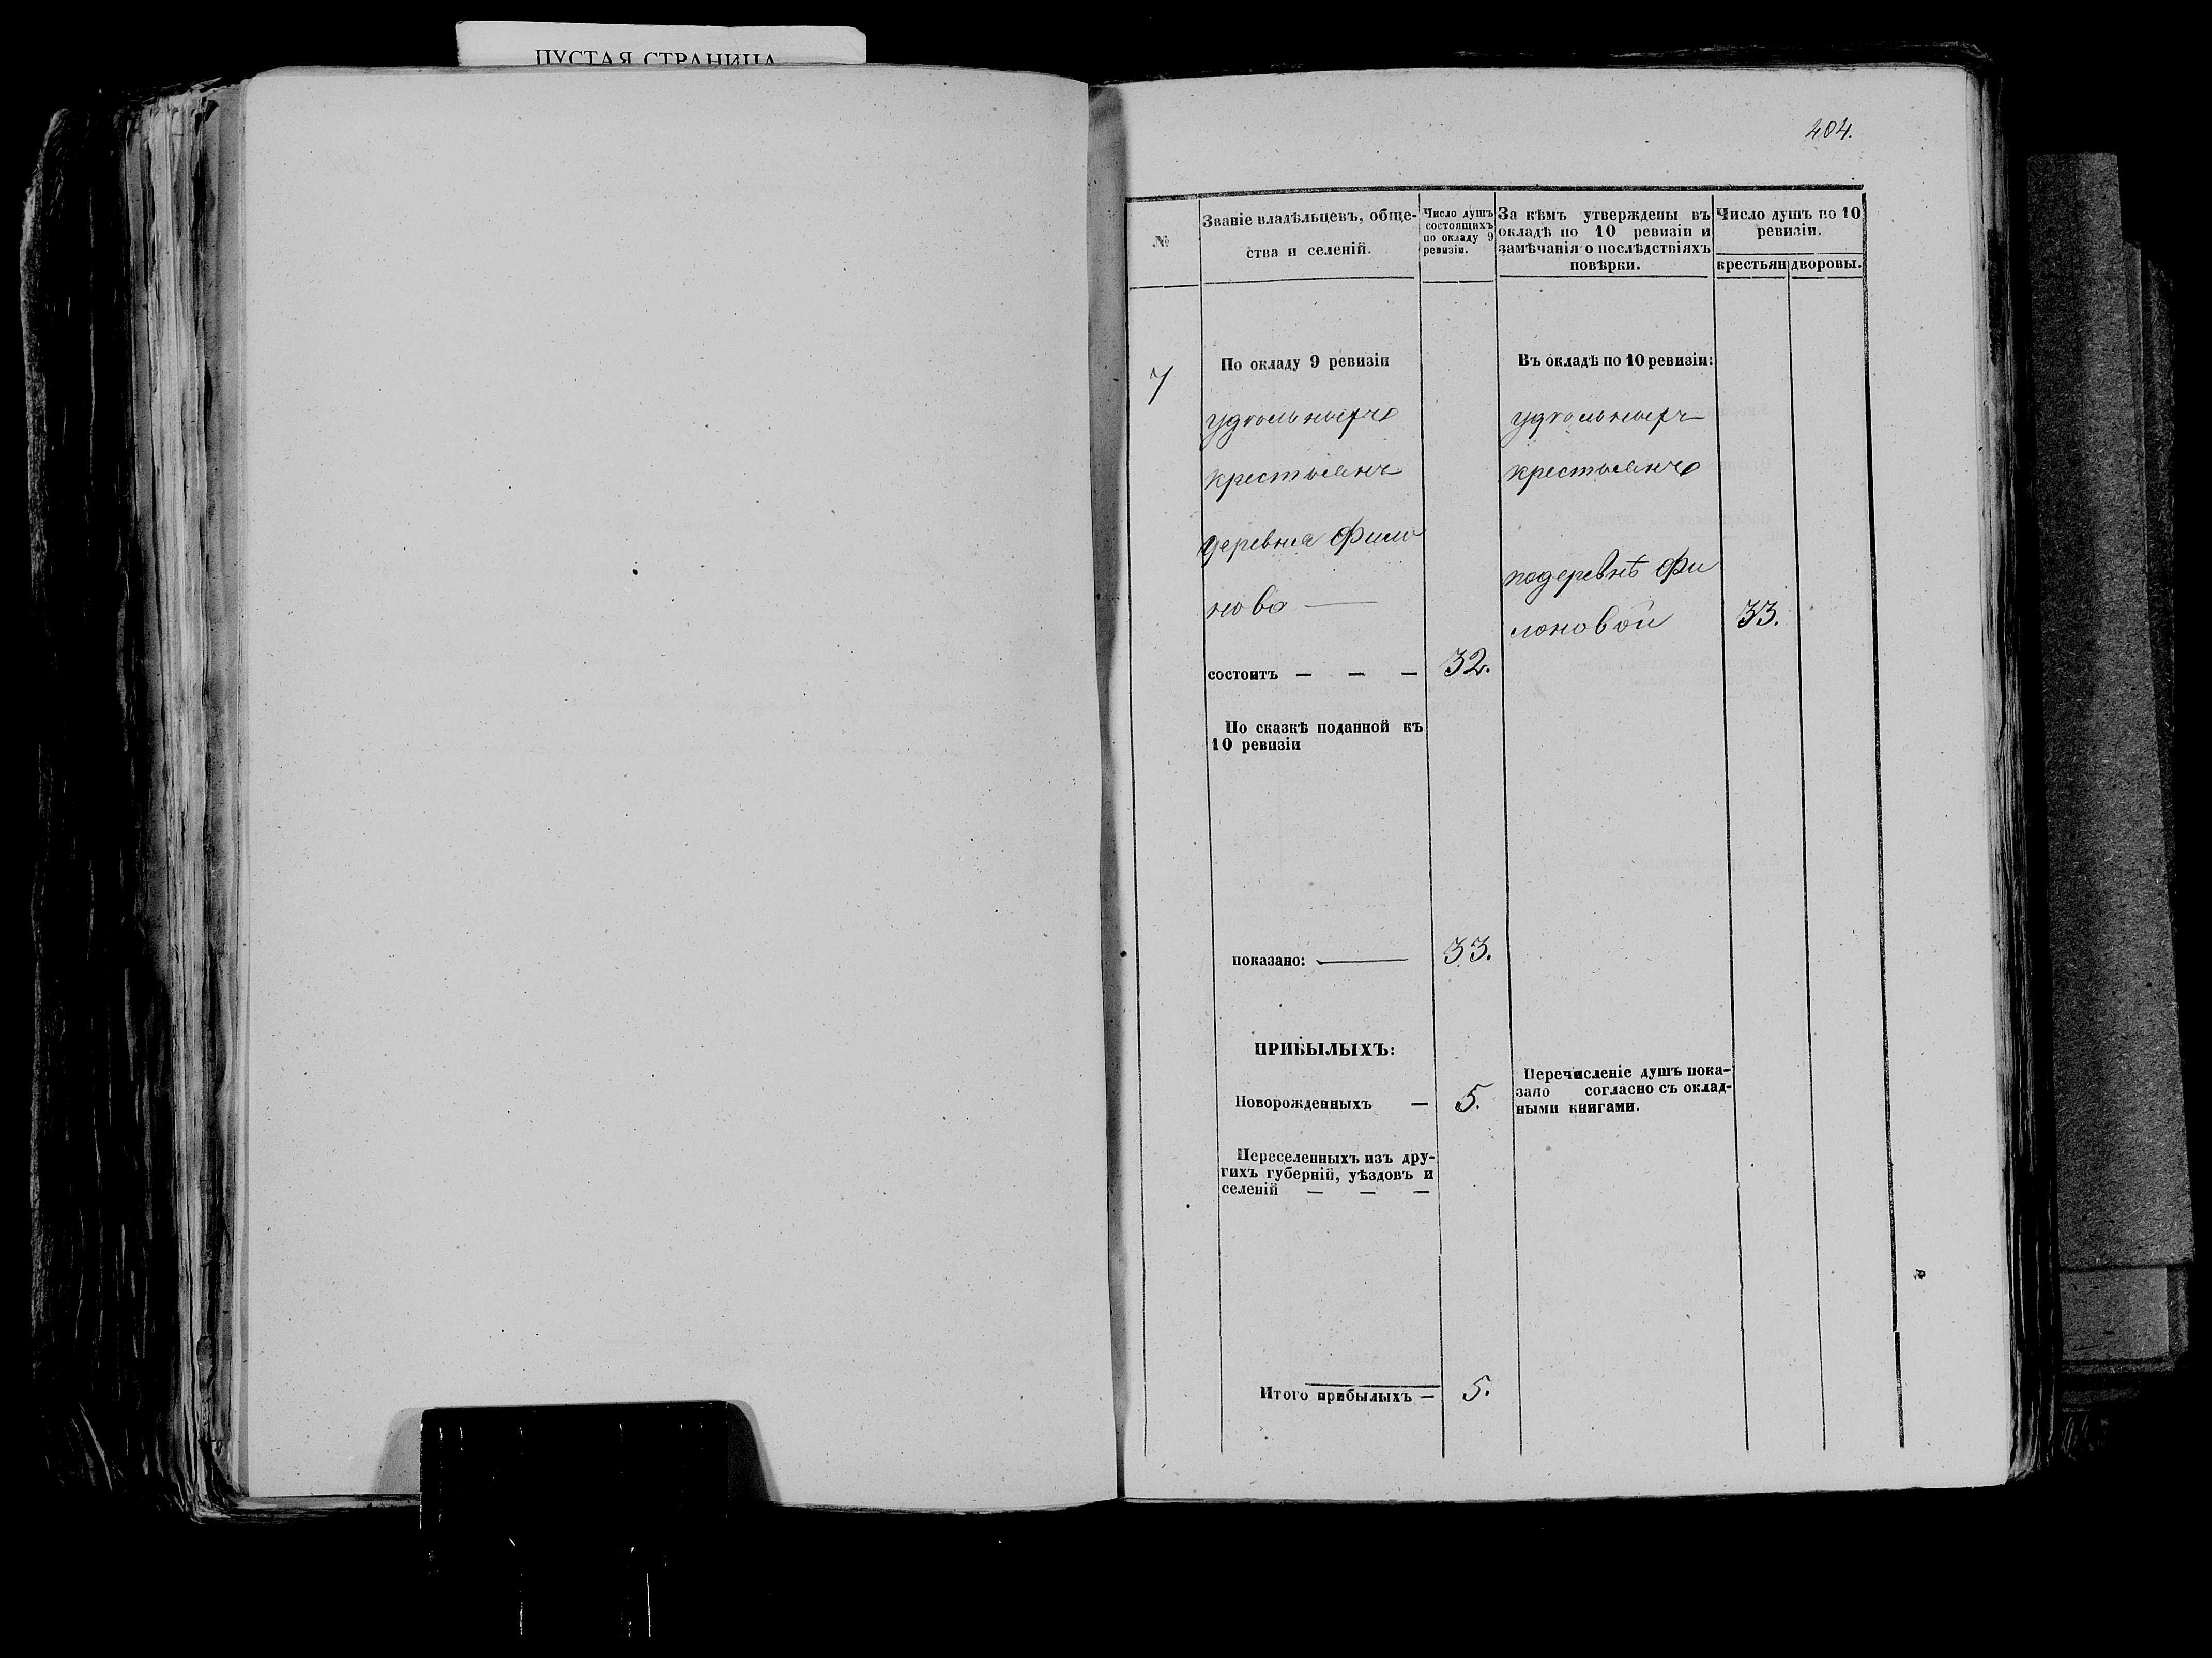 ПУСТАЯ СТРАНИЦА
404.
№
Званіе владѣльцевъ, обще-
ства и селеній.
Число душъ
состоящихъ
по окладу 9
ревизіи.
За кѣмъ утверждены въ
окладѣ по 10 ревизіи и
замѣчанія о послѣдствіяхъ
повѣрки.
Число душъ по 10
ревизіи.
крестьян
дворовы.
7
По окладу 9 ревизіи
удѣльныхъ
крестьянъ
деревня Фило
нова —
состоитъ — — —
32.
По сказкѣ поданной къ
10 ревизіи
показано: —
33.
ПРИБЫЛЫХЪ:
Новорожденныхъ —
5.
Переселенныхъ изъ дру-
гихъ губерній, уѣздовъ и
селеній — — —
Итого прибылыхъ —
5.
Въ окладѣ по 10 ревизіи:
удѣльныхъ
крестьянъ
подеревнѣ Фи
лоновой
33.
Перечисленіе душъ пока-
зано согласно съ оклад-
ными книгами.